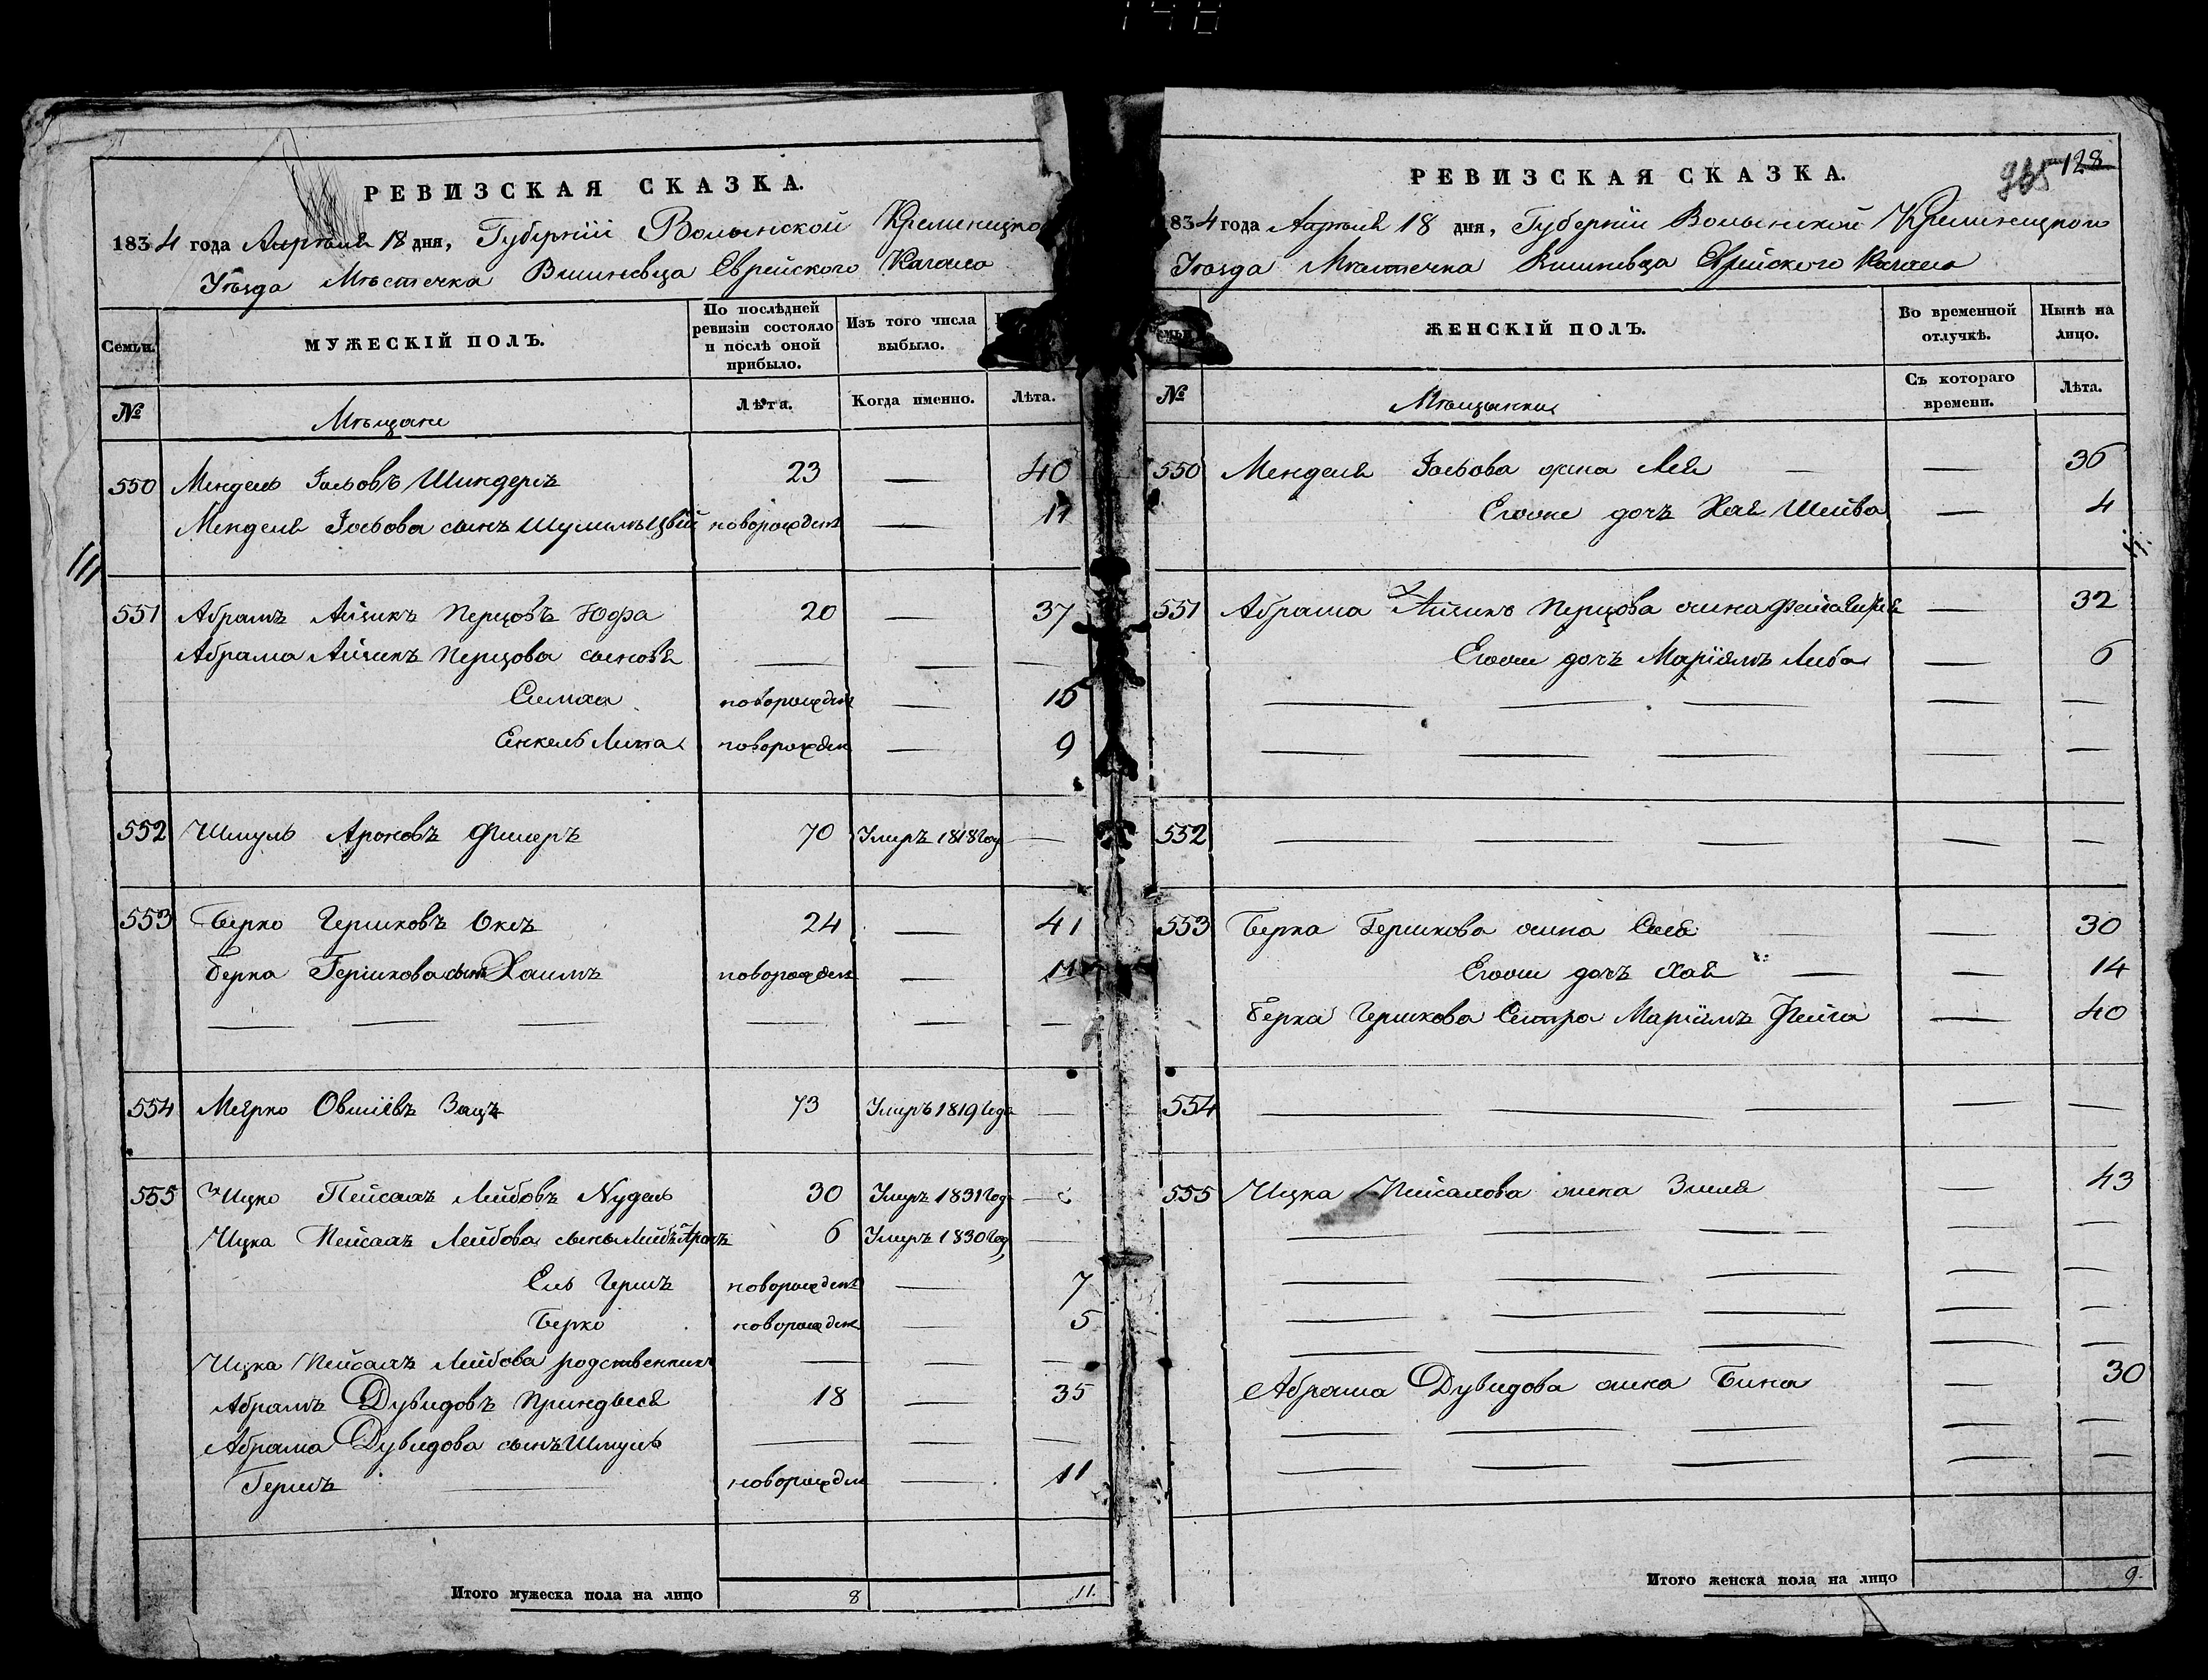 РЕВИЗСКАЯ СКАЗКА.
1834 года Апрѣля 18 дня, Губерніи Волынской Кременицко
Уѣзда Мѣстечка Вишневца Еврейского Кагала
Семьи.
МУЖЕСКІЙ ПОЛЪ.
По послѣдней ревизіи состояло и послѣ оной прибыло.
Изъ того числа выбыло.
№
Мѣщане
Лѣта.
Когда именно.
Лѣта.
550 Мендель Іосьовъ Шиндеръ 23 — 40
Менделя Іосьова сынъ новорожден — 11
551 Абрамъ Айзикъ Перцовъ Юфа 20 — 37
Абрама Айзикъ Перцова сыновья — — —
Симха новорожден — 15
Енкель Липа новорожден — 9
552 Шмуль Ароновъ Фишеръ 70 Умеръ 1818 год —
553 Берко Гершковъ Оксъ 24 — 41
Берка Гершкова сынъ Хаимъ новорожден —
— — — — — —
554 Меярко Овшіевъ Зацъ 73 Умеръ 1819 года —
555 Ицко Пейсахъ Лейбовъ Нудель 30 Умеръ 1831 год —
Ицка Пейсахъ Лейбова сыны Лейбъ Аронъ 6 Умеръ 1830 год —
Ель Гершъ новорожден — 7
Берко новорожден — 5
Ицка Пейсахъ Лейбова родственникъ — — —
Абрамъ Дувидовъ 18 — 35
Абрама Дувидова сынъ Шмуль — —
Гершъ — новорожден — 11
Итого мужеска пола на лицо 8 11.
128
РЕВИЗСКАЯ СКАЗКА.
834 года Апрѣля 18 дня, Губерніи Волынской Кременицкой
Уѣзда Мѣстечка Вишневца Еврейского Кагала
ЖЕНСКІЙ ПОЛЪ.
Во временной отлучкѣ.
Нынѣ на лицо.
№
Мѣщанки
Съ котораго времени.
Лѣта.
550 Менделя Іосьова жена Лея — — 36
Егоже дочь Хая Шейва — 4
551 Абрама Айзикъ Перцова жена — 32
Егоже дочь Маріямъ Либа — 6
— — — — —
— — — — —
552 — — — — —
553 Берка Гершкова жена — 30
Егоже дочь Хая — — 14
Берка Гершкова Сестра Маріямъ Фейга — 40
554 — — — — —
555 Ицка Пейсахова жена Зися — 43
— — — — —
— — — — —
— — — — —
— — — — —
Абрама Дувидова жена Бина — 30
— — — — —
— — — — —
Итого женска пола на лицо 9.